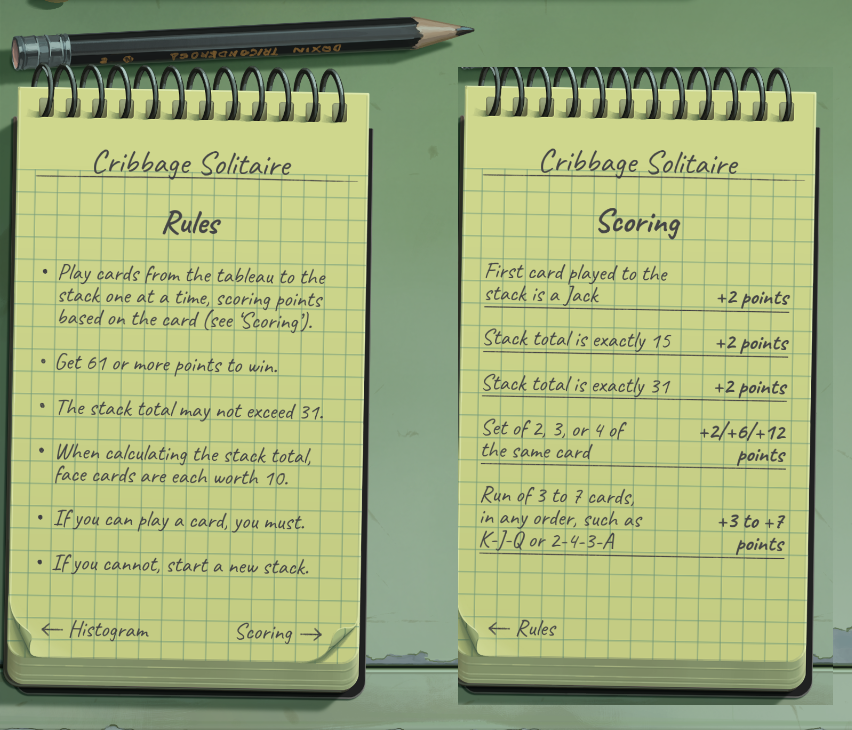 DRXIN TRICONDEROGA
Cribbage Solitaire
Rules
• Play cards from the tableau to the
stack one at a time, scoring points
based on the card (see 'Scoring').
• Get 61 or more points to win.
• The stack total may not exceed 31.
• When calculating the stack total,
face cards are each worth 10.
• If you can play a card, you must.
• If you cannot, start a new stack.
← Histogram Scoring →
Cribbage Solitaire
Scoring
First card played to the
stack is a Jack +2 points
Stack total is exactly 15 +2 points
Stack total is exactly 31 +2 points
Set of 2, 3, or 4 of +2/+6/+12
the same card points
Run of 3 to 7 cards,
in any order, such as +3 to +7
K-J-Q or 2-4-3-A points
← Rules